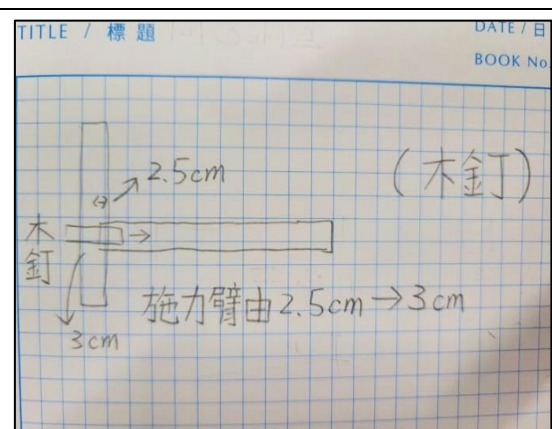 TITLE / 標題
DATE / 日
BOOK No.
2.5cm
(木釘)
木釘
施力臂由2.5cm→3cm
3cm